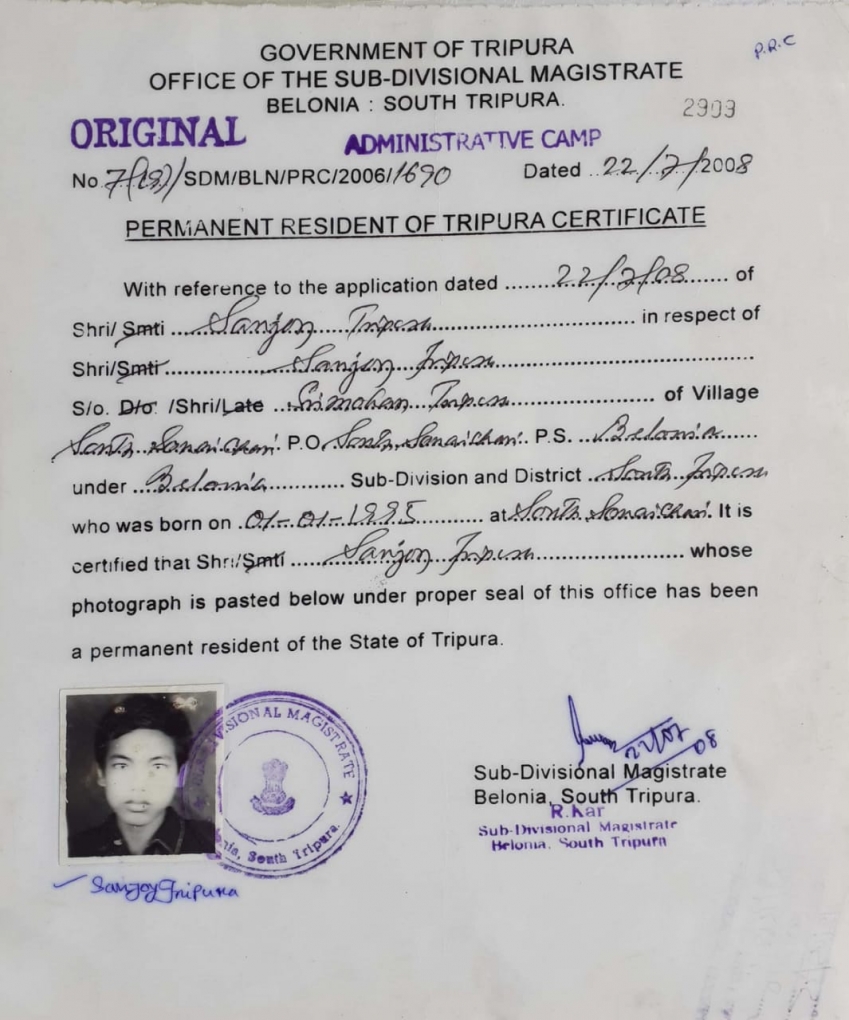 P.R.C
GOVERNMENT OF TRIPURA
OFFICE OF THE SUB-DIVISIONAL MAGISTRATE
BELONIA : SOUTH TRIPURA.
2909
ORIGINAL ADMINISTRATIVE CAMP
No 7(18)/SDM/BLN/PRC/2006/1690 Dated ..22/7/2008
PERMANENT RESIDENT OF TRIPURA CERTIFICATE
With reference to the application dated ........22/7/08....... of
Shri/ Smti ....Sanjoy.....Tripura............................ in respect of
Shri/Smti....................Sanjoy Tripura...............................
S/o. D/o. /Shri/Late ...Srimohan Tripura.................... of Village
South Sonaichari. P.O. South Sonaichari. P.S. ...Belonia.......
under ..Belonia............. Sub-Division and District ..South Tripura
who was born on .01-01-1995......... at South Sonaichari. It is
certified that Shri/Smti ......Sanjoy Tripura...................... whose
photograph is pasted below under proper seal of this office has been
a permanent resident of the State of Tripura.
DIVISIONAL MAGISTRATE
South Tripura.
22/07/08
Sub-Divisional Magistrate
Belonia, South Tripura.
R.Kar
Sub-Divisional Magistrate
Belonia, South Tripura
Sanjoy Tripura